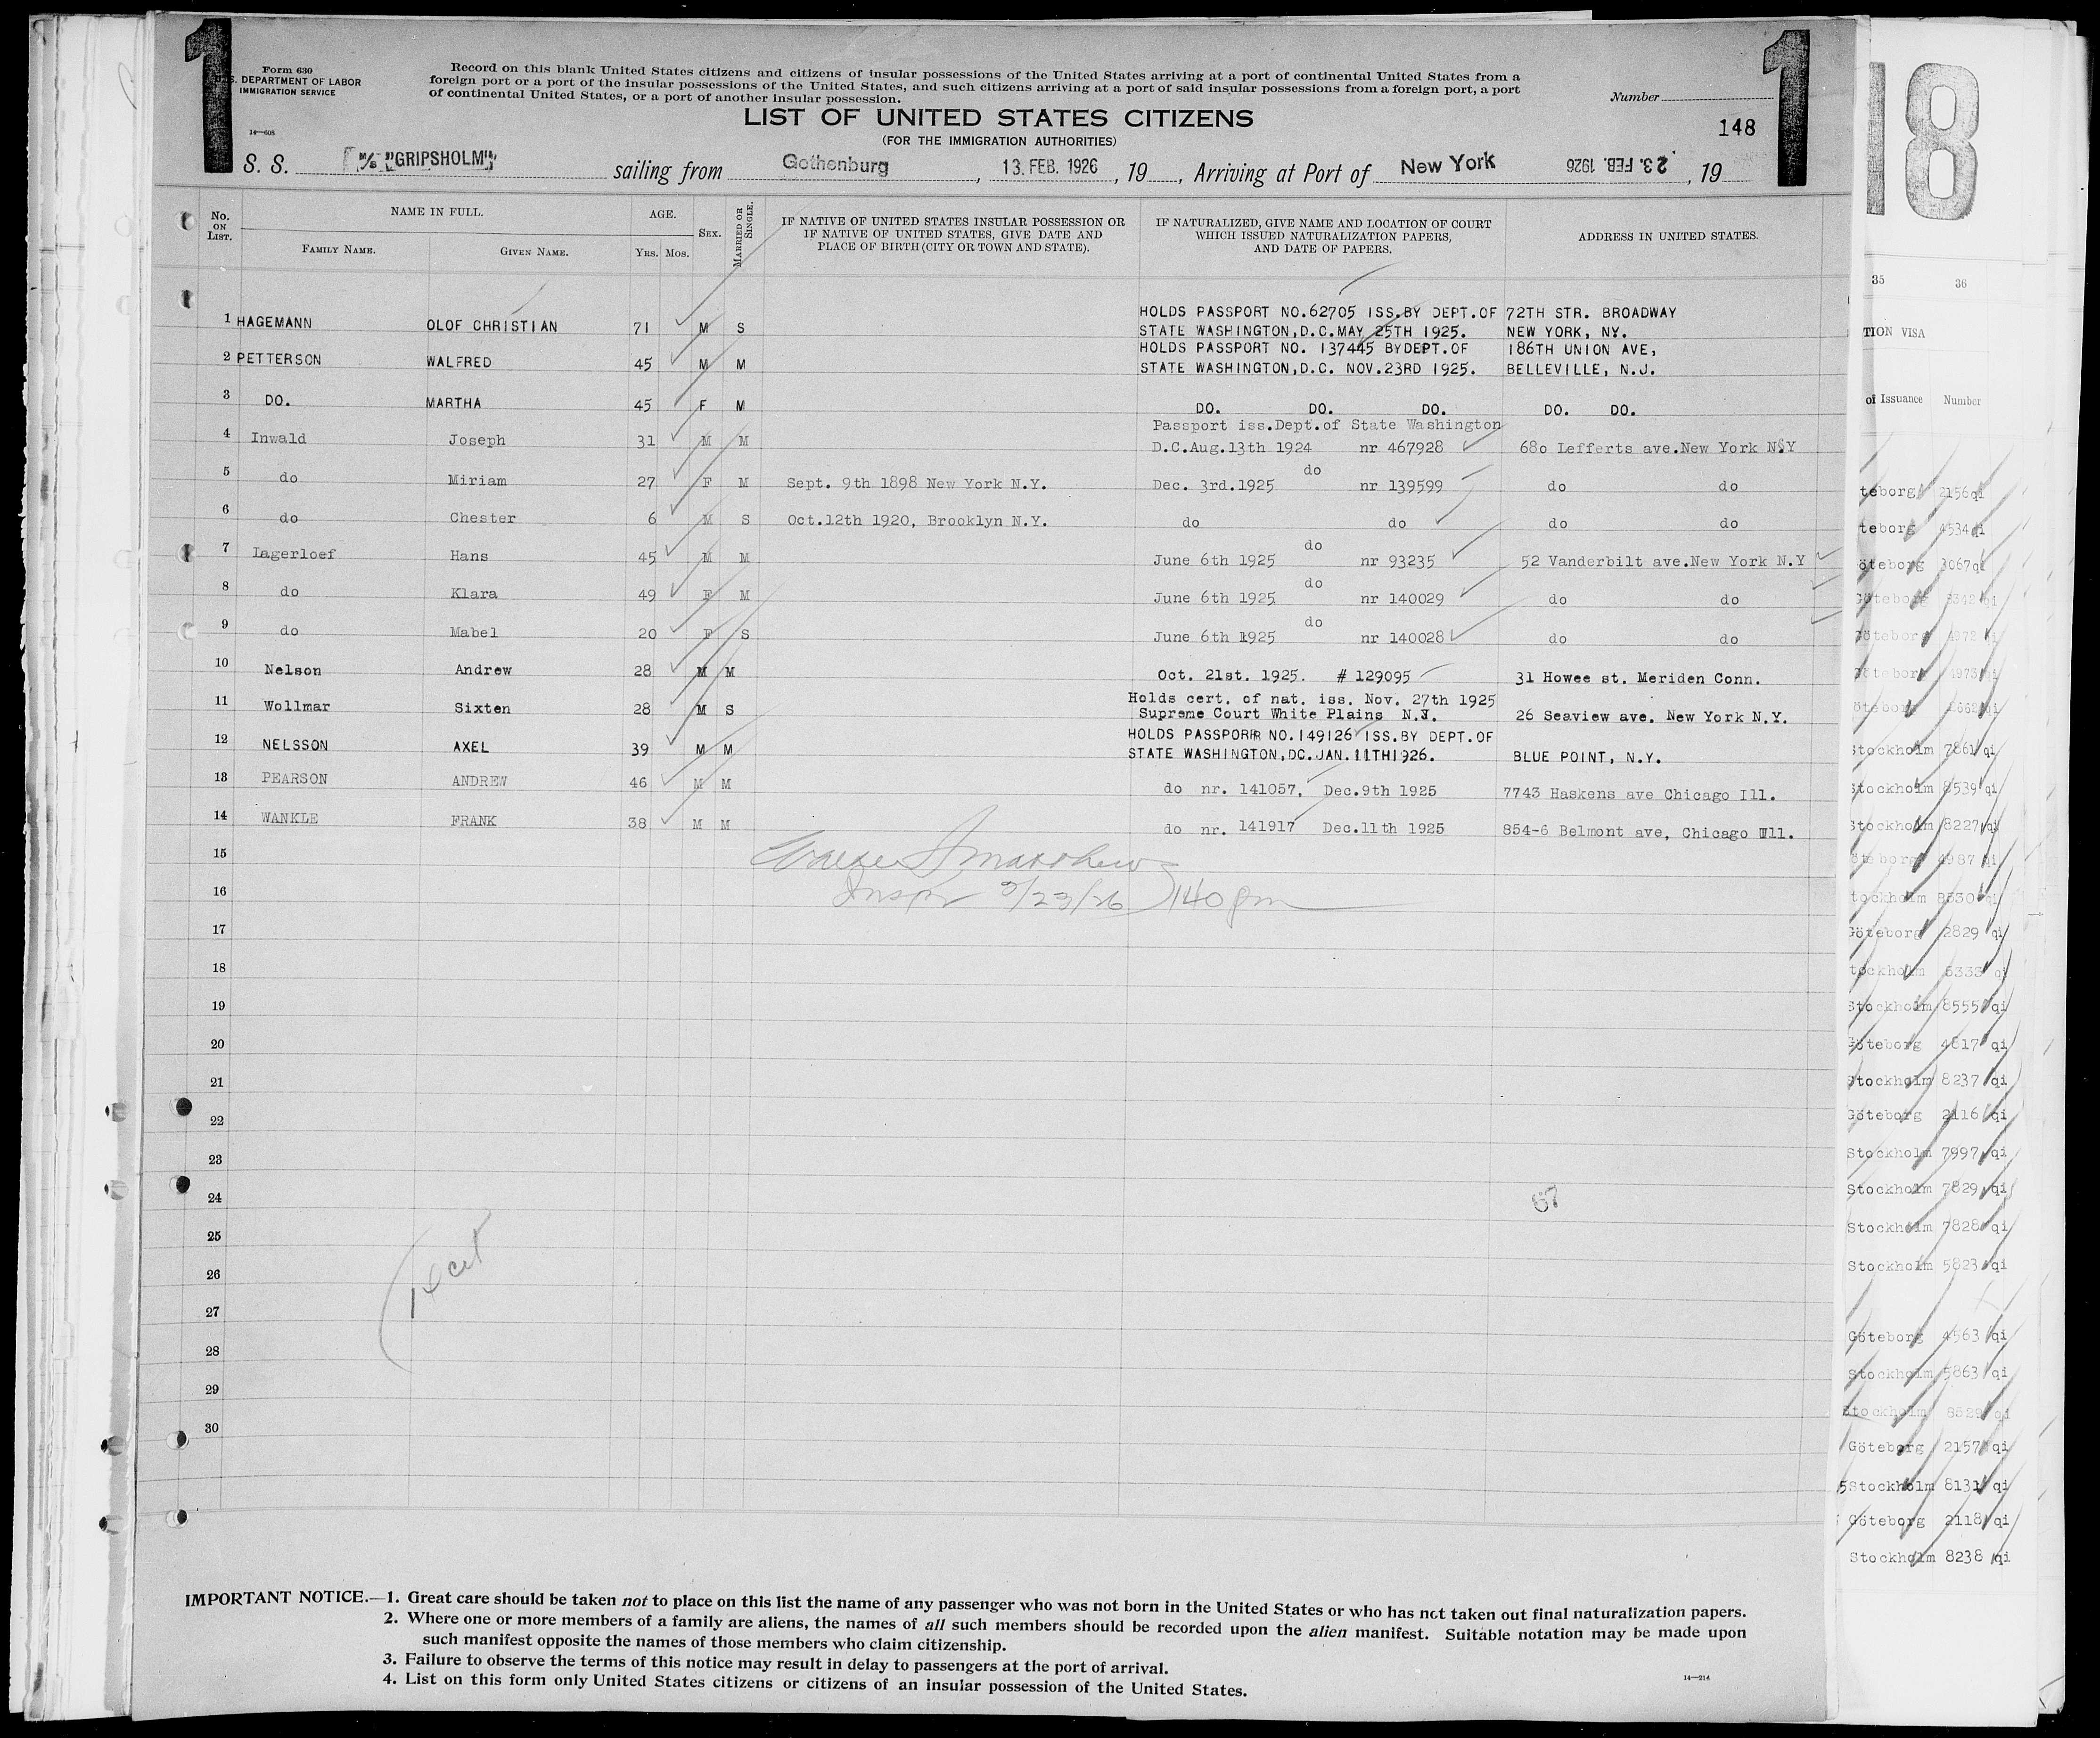 1
1
18
Form 630
U. S. DEPARTMENT OF LABOR
IMMIGRATION SERVICE
14—608
Record on this blank United States citizens and citizens of insular possessions of the United States arriving at a port of continental United States from a
foreign port or a port of the insular possessions of the United States, and such citizens arriving at a port of said insular possessions from a foreign port, a port
of continental United States, or a port of another insular possession.
Number
LIST OF UNITED STATES CITIZENS
148
(FOR THE IMMIGRATION AUTHORITIES)
S. S. M/S "GRIPSHOLM" sailing from Gothenburg, 13. FEB. 1926, 19, Arriving at Port of New York 23. FEB. 1926, 19
No. ON LIST. NAME IN FULL. FAMILY NAME. GIVEN NAME. AGE. YRS. MOS. SEX. MARRIED OR SINGLE. IF NATIVE OF UNITED STATES INSULAR POSSESSION OR IF NATIVE OF UNITED STATES, GIVE DATE AND PLACE OF BIRTH (CITY OR TOWN AND STATE). IF NATURALIZED, GIVE NAME AND LOCATION OF COURT WHICH ISSUED NATURALIZATION PAPERS, AND DATE OF PAPERS. ADDRESS IN UNITED STATES.
HOLDS PASSPORT NO.62705 ISS.BY DEPT.OF 72TH STR. BROADWAY
1 HAGEMANN OLOF CHRISTIAN 71 M S STATE WASHINGTON,D.C.MAY 25TH 1925. NEW YORK, NY.
HOLDS PASSPORT NO. 137445 BYDEPT.OF 186TH UNION AVE,
2 PETTERSON WALFRED 45 M M STATE WASHINGTON,D.C. NOV.23RD 1925. BELLEVILLE, N.J.
3 DO. MARTHA 45 F M DO. DO. DO. DO. DO.
Passport iss.Dept.of State Washington
4 Inwald Joseph 31 M M D.C.Aug.13th 1924 nr 467928 680 Lefferts ave.New York N.Y
do
5 do Miriam 27 F M Sept. 9th 1898 New York N.Y. Dec. 3rd.1925 nr 139599 do do
6 do Chester 6 M S Oct.12th 1920, Brooklyn N.Y. do do do do
do
7 Lagerloef Hans 45 M M June 6th 1925 nr 93235 52 Vanderbilt ave.New York N.Y
do
8 do Klara 49 F M June 6th 1925 nr 140029 do do
do
9 do Mabel 20 F S June 6th 1925 nr 140028 do do
10 Nelson Andrew 28 M M Oct. 21st. 1925. # 129095 31 Howee st. Meriden Conn.
Holds cert. of nat. iss. Nov. 27th 1925
11 Wollmar Sixten 28 M S Supreme Court White Plains 26 Seaview ave. New York N.Y.
HOLDS PASSPORR NO.149126 ISS.BY DEPT.OF
12 NELSSON AXEL 39 M M STATE WASHINGTON,DC.JAN.11TH1926. BLUE POINT, N.Y.
13 PEARSON ANDREW 46 M M do nr. 141057, Dec.9th 1925 7743 Haskens ave Chicago Ill.
14 WANKLE FRANK 38 M M do nr. 141917 Dec.11th 1925 854-6 Belmont ave, Chicago Ill.
15
Matthews
16 Inspr 2/23/26 140 pm
17
18
19
20
21
22
23
24
25
26
27
28
29
30
IMPORTANT NOTICE.—1. Great care should be taken not to place on this list the name of any passenger who was not born in the United States or who has not taken out final naturalization papers.
2. Where one or more members of a family are aliens, the names of all such members should be recorded upon the alien manifest. Suitable notation may be made upon
such manifest opposite the names of those members who claim citizenship.
3. Failure to observe the terms of this notice may result in delay to passengers at the port of arrival.
4. List on this form only United States citizens or citizens of an insular possession of the United States.
14—214
35 36
TION VISA
of Issuance Number
teborg 2156 qi
teborg 4534 qi
öteborg 3067 qi
Göteborg
Göteborg
Göteborg
Stockholm 7861 qi
Stockholm 8539 qi
Stockholm 8227 qi
4987 qi
tockholm 8530 qi
Göteborg 2829 qi
tockholm qi
Stockholm 8555 qi
Göteborg 4817 qi
Stockholm 8237 qi
Göteborg 2116 qi
Stockholm 7997 qi
Stockholm 7829 qi
Stockholm 7828 qi
Stockholm 5823 qi
Göteborg 4563 qi
Stockholm 5863 qi
Stockholm 8529 qi
Göteborg 2157 qi
5 Stockholm 8131 qi
Göteborg 2118 qi
Stockholm 8238 qi